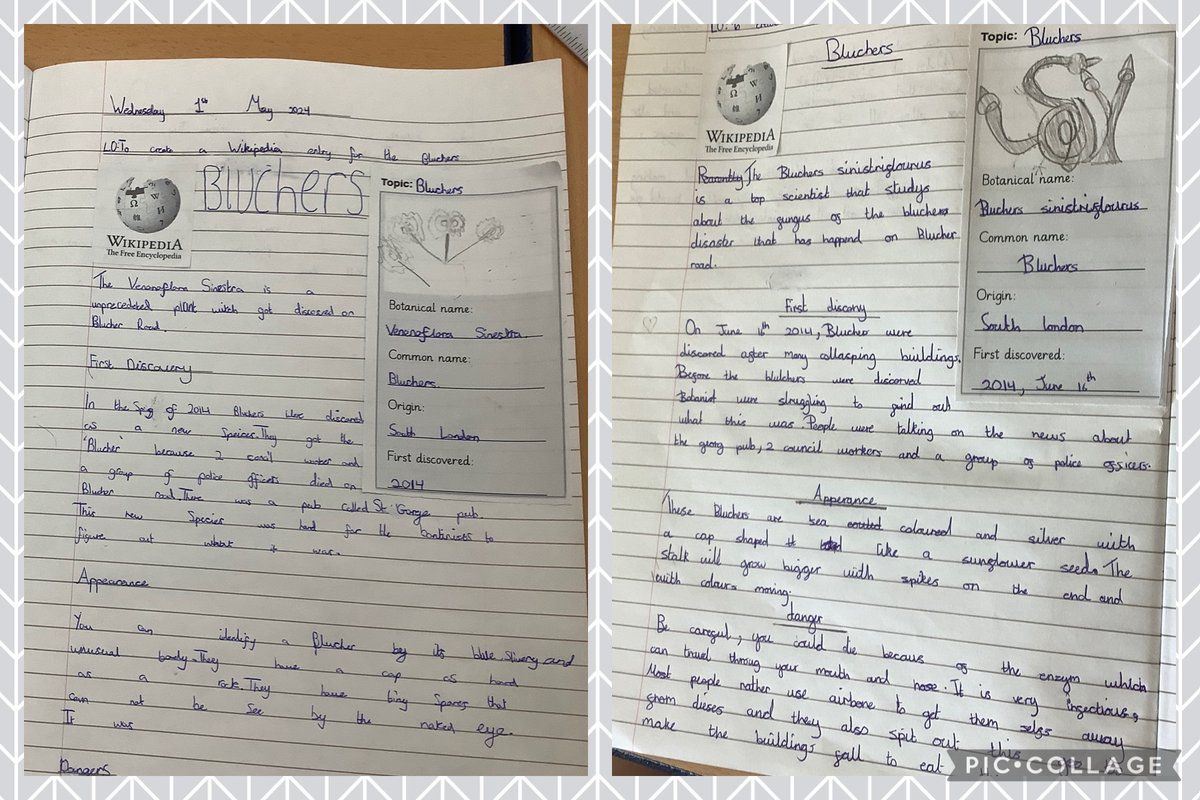 Wednesday 1st May 2024
LO:To create a Wikipedia entry for the Bluchers
BLUCHERS
WIKIPEDIA
The Free Encyclopedia
Topic: Bluchers
Botanical name:
Venenoflora Sinestra
Common name:
Bluchers
Origin:
South London
First discovered:
2014
The Venenoflora Sinestra is a
unprecedeted plant witch got discovered on
Blucher Road.
First Discovery
In the Spig of 2014 Bluchers were discored
as a new Speices. They got the
'Blucher' because 2 concil worker and
a group of police officers died on
Blucher road. There was a pub called St 'Gorge pub.
This new Species was hard for the
figure out what it was.
Appearance
You can identify a Blucher by its blue, slivery and
unusual body. They have a cap as hard
as a rock. They have tiny Spores that
can not be see by the naked eye.
It was
Dangers
Bluchers
WIKIPEDIA
The Free Encyclopedia
Topic: Bluchers
Botanical name:
Bluchers sinistriglaurus
Common name:
Bluchers
Origin:
South london
First discovered:
2014, June 16th
The Bluchers sinistriglaurus
is a top scientist that studys
about the fungus of the bluchers
disaster that has happend on Blucher
road.
First discovry
On June 16th 2014, Blucher were
discored after many collasping buildings.
Before the blulchers were discorved
Botanist were struggling to find out
what this was. People were talking on the news about
the georg pub, 2 council workers and a group of police officers.
Apperance
These bluchers are coloured and silver with
a cap shaped like a sunflower seed. The
stalk will grow bigger with spikes on the end and
with colours moving.
danger
Be careful, you could die becaus of the enzym which
can travel throug your mouth and nose. It is very infectious,
Most people rather use airbone to get them selfs away
from dieses and they also spit out this
make the buildings fall to eat
PIC•COLLAGE